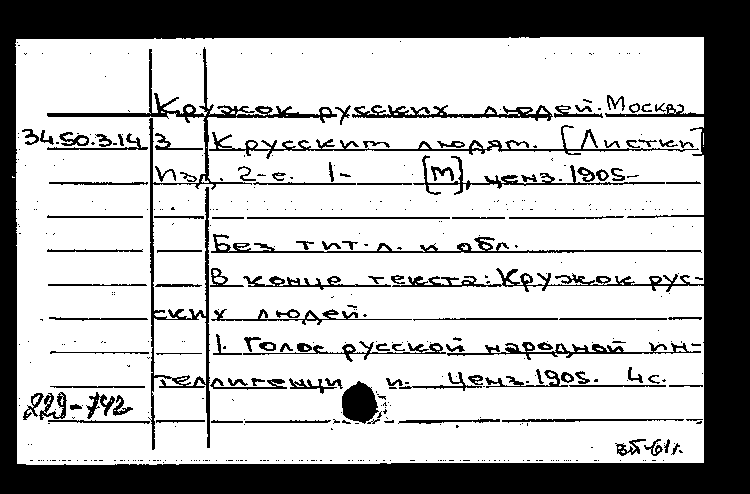 Кружок русских людей. Москва
34.50.3.14 3 К русским людям. [Листки]
Изд. 2-е. 1- [М], ценз. 1905-
Без тит. л. и обл.
В конце текста: Кружок рус-
ских людей.
1. Голос русской народной ин-
теллигенции. Ценз. 1905. 4 с.
229-742